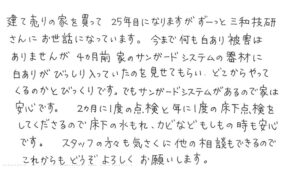 建て売りの家を買って 25年目になりますがずーっと三和技研
さんにお世話になっています。 今まで何も白あり被害は
ありませんが 4カ月前 家のサンガードシステムの器材に
白ありがびっしり入っていたのを見せてもらい、どこからやって
くるのかとびっくりです。でもサンガードシステムがあるので家は
安心です。 2カ月に1度の点検と年に1度の床下点検を
してくださるので床下の水もれ、カビなどもしもの時も安心
です。 スタッフの方々も気さくに他の相談もできるので
これからもどうぞよろしくお願いします。